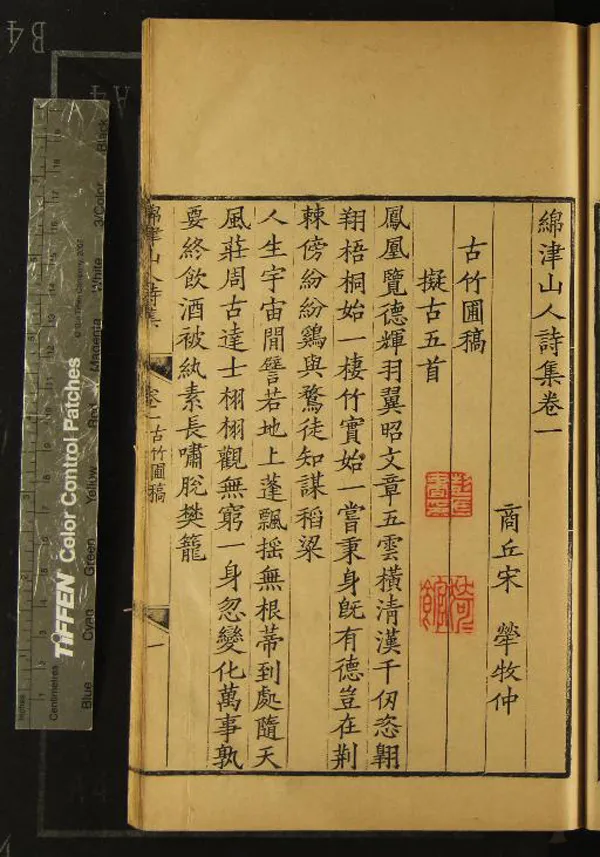 綿津山人詩集卷一
商丘宋 犖牧仲
古竹圃稿
擬古五首
鳳凰覽德輝羽翼昭文章五雲橫清漢千仞恣翱
翔梧桐始一棲竹實始一嘗秉身旣有德豈在荆
棘傍紛紛鷄與鶩徒知謀稻粱
人生宇宙閒譬若地上蓬飄揺無根蒂到處隨天
風莊周古達士栩栩觀無窮一身忽變化萬事孰
要終飲酒被紈素長嘯脫樊籠
綿津山人詩集
卷一古竹圃稿
一
B4
A4
TIFFEN Color Control Patches
© The Tiffen Company, 2007
Blue
Cyan
Green
Yellow
Red
Magenta
White
3/Color
Black
Inches
Centimetres